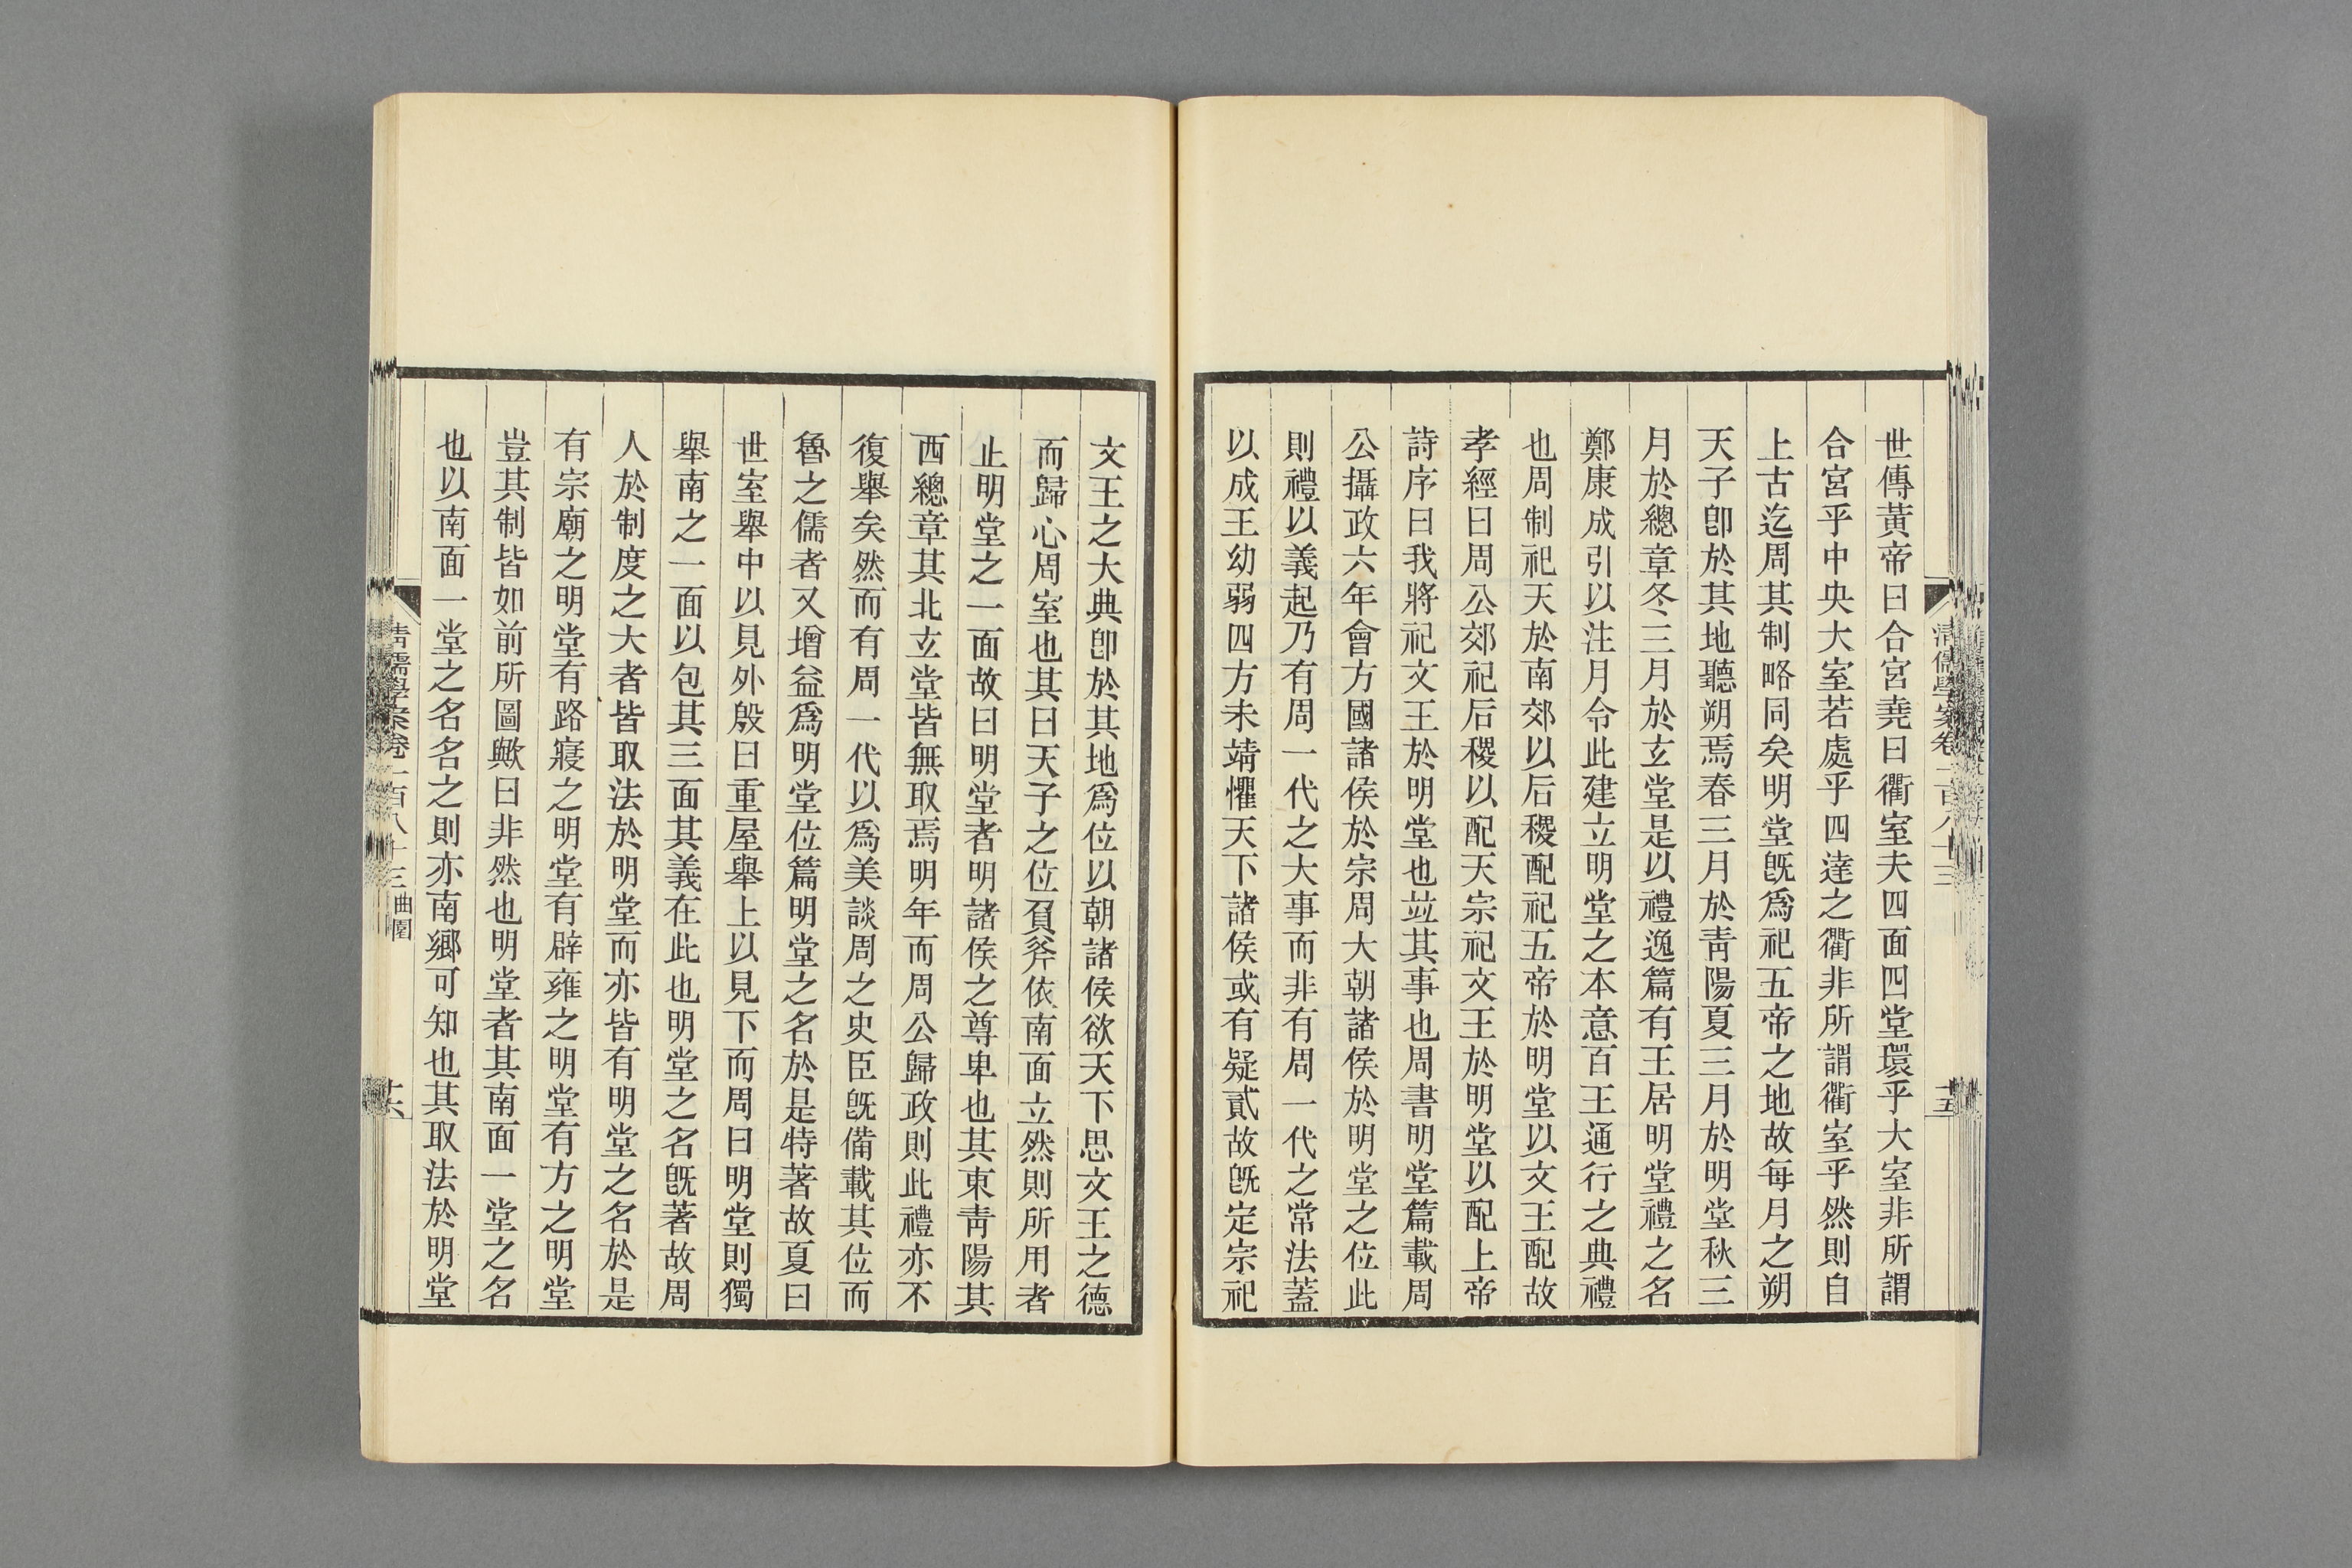 世傳黃帝曰合宮堯曰衢室夫四面四堂環乎大室非所謂
合宮乎中央大室若處乎四達之衢非所謂衢室乎然則自
上古迄周其制略同矣明堂旣爲祀五帝之地故每月之朔
天子卽於其地聽朔焉春三月於靑陽夏三月於明堂秋三
月於總章冬三月於玄堂是以禮逸篇有王居明堂禮之名
鄭康成引以注月令此建立明堂之本意百王通行之典禮
也周制祀天於南郊以后稷配祀五帝於明堂以文王配故
孝經曰周公郊祀后稷以配天宗祀文王於明堂以配上帝
詩序曰我將祀文王於明堂也竝其事也周書明堂篇載周
公攝政六年會方國諸侯於宗周大朝諸侯於明堂之位此
則禮以義起乃有周一代之大事而非有周一代之常法蓋
以成王幼弱四方未靖懼天下諸侯或有疑貳故旣定宗祀
文王之大典卽於其地爲位以朝諸侯欲天下思文王之德
而歸心周室也其曰天子之位負斧依南面立然則所用者
止明堂之一面故曰明堂者明諸侯之尊卑也其東靑陽其
西總章其北玄堂皆無取焉明年而周公歸政則此禮亦不
復舉矣然而有周一代以爲美談周之史臣旣備載其位而
魯之儒者又增益爲明堂位篇明堂之名於是特著故夏曰
世室舉中以見外殷曰重屋舉上以見下而周曰明堂則獨
舉南之一面以包其三面其義在此也明堂之名旣著故周
人於制度之大者皆取法於明堂而亦皆有明堂之名於是
有宗廟之明堂有路寢之明堂有辟雍之明堂有方之明堂
豈其制皆如前所圖歟曰非然也明堂者其南面一堂之名
也以南面一堂之名名之則亦南鄉可知也其取法於明堂
淸儒學案卷一百八十三 曲園